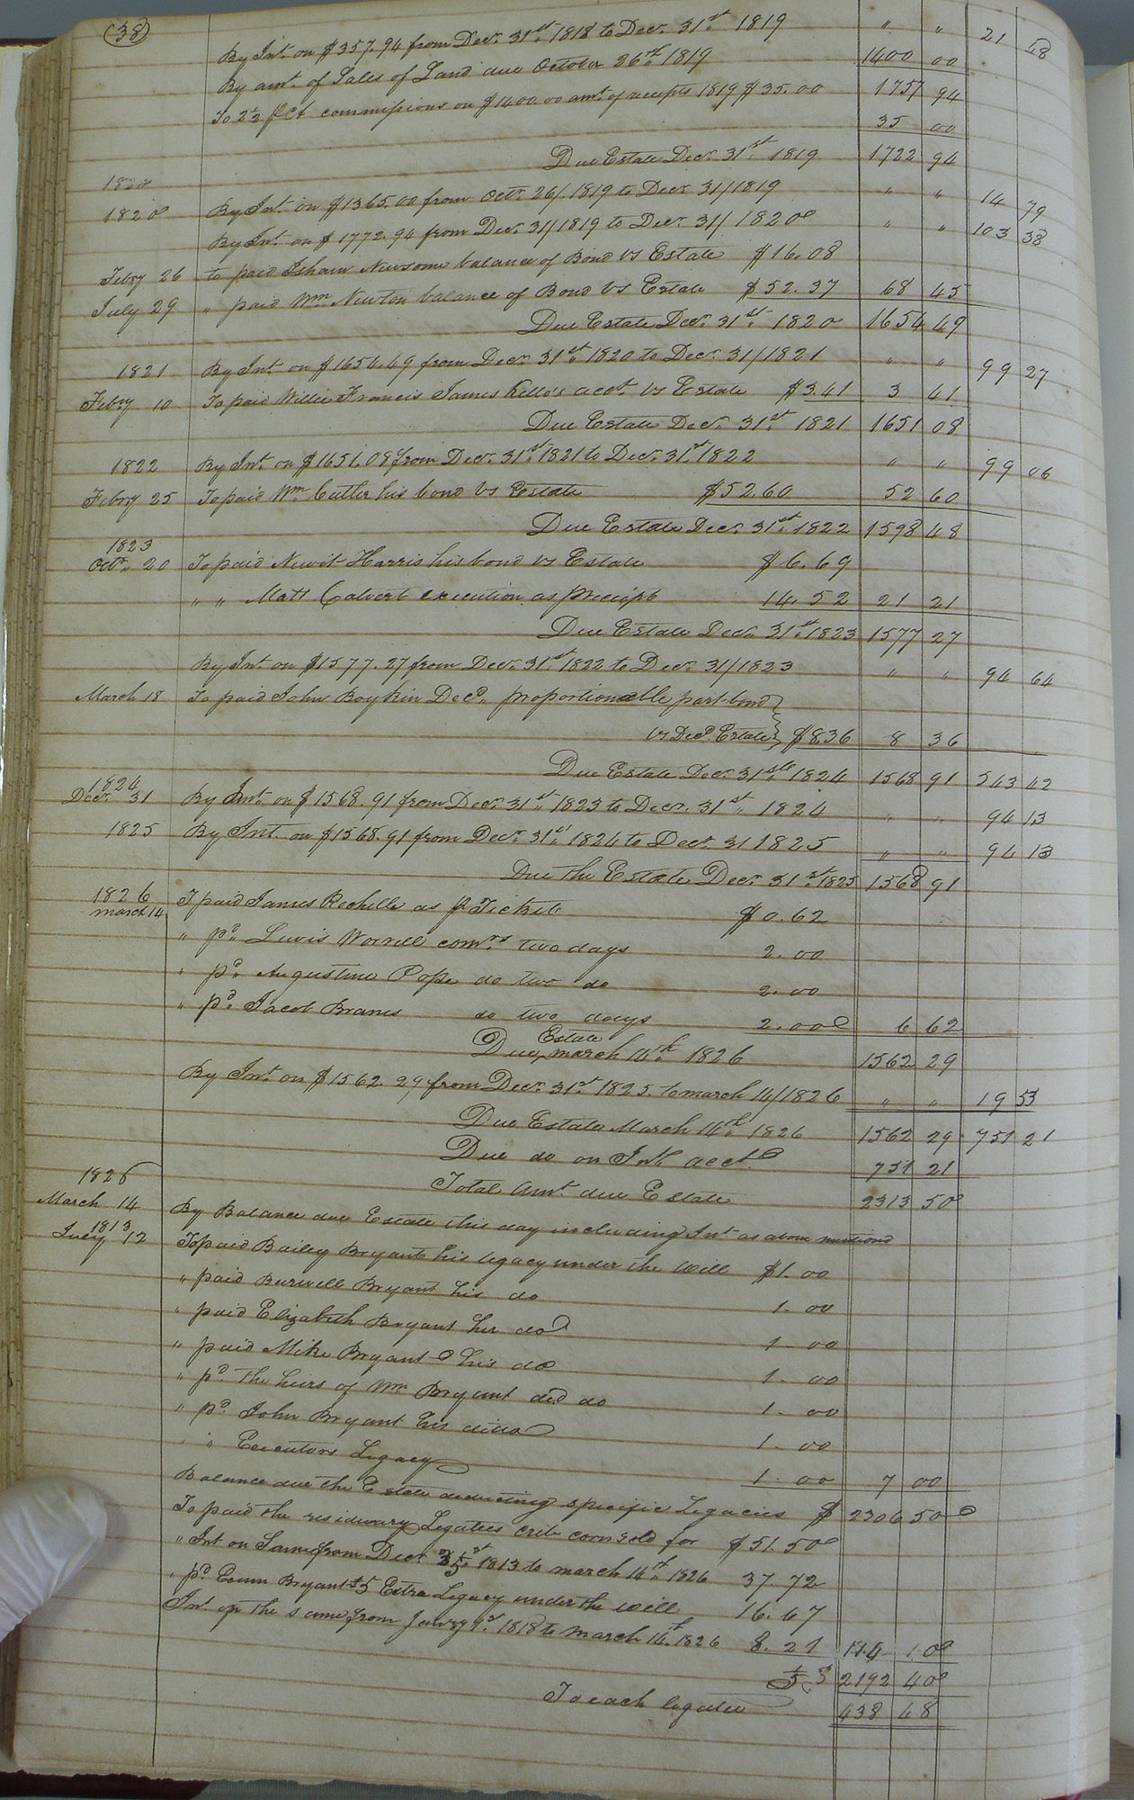 (38)
By Int. on $357.94 from Decr. 31st 1818 to Decr. 31st 1819 " " 21 48
By amt. of Sales of Land due October 26th 1819 1400 00
To 2½ p Ct commissions on $1400.00 amt. of receipts 1819 $35.00 1757 94
35 00
Due Estate Decr. 31st 1819 1722 94
1820
1820 By Int. on $1365.00 from Octr. 26/1819 to Decr. 31/1819 " " 14 79
By Int. on $1772.94 from Decr. 31/1819 to Decr. 31/1820 " " 103 38
Febry 26 to paid Isham Newsom balance of Bond vs Estate $16.08
July 29 " paid Wm Newton balance of Bond vs Estate $52.37 68 45
Due Estate Decr. 31st 1820 1654 49
1821 By Int on $1654.49 from Decr. 31st 1820 to Decr. 31/1821 " " 99 27
Febry 10 To paid Willie Francis James Kello's acct. vs Estate $3.41 3 41
Due Estate Decr. 31st 1821 1651 08
1822 By Int. on $1651.08 from Decr. 31st 1821 to Decr. 31st 1822 " " 99 06
Febry 25 To paid Wm Cutler his bond vs Estate $52.60 52 60
Due Estate Decr. 31st 1822 1598 48
1823
Octr. 20 To paid Newit Harris his bond vs Estate $6.69
" " Matt Calvert execution as p receipt 14.52 21 21
Due Estate Decr. 31st 1823 1577 27
By Int on $1577.27 from Decr. 31st 1822 to Decr. 31/1823 " " 94 64
March 18 To paid John Boykin Decd. proportionable part bond
vs Decd. Estate $8.36 8 36
Due Estate Decr. 31st 1824 1568 91 543 42
1824
Decr. 31 By Int. on $1568.91 from Decr. 31st 1823 to Decr. 31st 1824 " " 94 13
1825 By Int. on $1568.91 from Decr. 31st 1824 to Decr 31 1825 " " 94 13
Due the Estate Decr. 31st 1825 1568 91
1826
march 14 To paid James Rochelle as p Ticket $0.62
" pd. Lewis Worrell comrs two days 2.00
" pd. Augustine Pope do two do 2.00
" pd. Jacob Branes do two days 2.00 6 62
Due Estate march 14th 1826 1562 29
By Int. on $1562.29 from Decr. 31st 1825 to march 14/1826 " " 19 53
Due Estate March 14th 1826 1562 29 751 21
Due do on Int. acct. 751 21
Total Amt due Estate 2313 50
1826
March 14 By Balance due Estate this day including Int as above mentiond
1813
July 12 To paid Bailey Bryant his legacy under the Will $1.00
" paid Burwell Bryant his do 1.00
" paid Elizabeth Bryant her do 1.00
" paid Mike Bryant his do 1.00
" pd the heirs of Wm Bryant decd do 1.00
" pd. John Bryant his ditto 1.00
" " Executors Legacy 1.00 7 00
Balance due the Estate deducting specific Legacies $ 2306 50
To paid the residuary Legatees crib corn sold for $51.50
" Int on Same from Decr 31st 1813 to march 14th 1826 37.72
" pd Bryant $5 Extra Legacy under the will 16.67
Int. on the same from 1st 1818 to March 14th 1826 8.21 114 10
5 2192 40
To each legatee 438 48